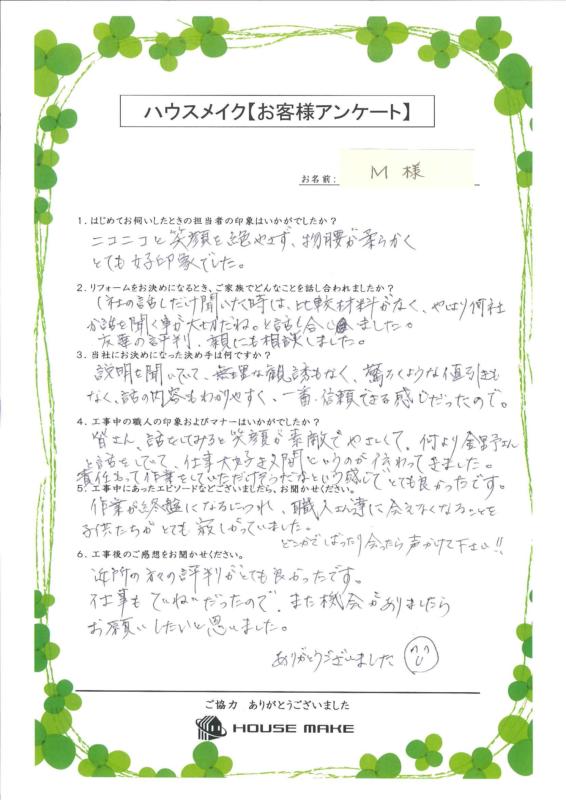 ハウスメイク【お客様アンケート】
お名前: M 様
1. はじめてお伺いしたときの担当者の印象はいかがでしたか？
ニコニコと笑顔を絶やさず、物腰が柔らかく
とても好印象でした。
2. リフォームをお決めになるとき、ご家族でどんなことを話し合われましたか？
1社の話しだけ聞いた時は、比較材料がなく、やはり何社
か話を聞く事が大切だね。と話し合いました。
友達の評判、親にも相談しました。
3. 当社にお決めになった決め手は何ですか？
説明を聞いていて、無理な観誘もなく、驚ろくような値引きも
なく、話の内容もわかりやすく、一番信頼できる感じだったので。
4. 工事中の職人の印象およびマナーはいかがでしたか？
皆さん、話をしてみると笑顔が素敵でやさしくて、何より さん
と話をしていて、仕事大好き人間というのが伝わってきました。
責任もって作業をしていただけそうだなという感じでとても良かったです。
5. 工事中にあったエピソードなどございましたら、お聞かせください。
作業が終盤になるにつれ、職人さん達に会えなくなることを
子供たちがとても寂しがっていました。
どこかでばったり会ったら声かけて下さい!!
6. 工事後のご感想をお聞かせください。
近所の方々の評判がとても良かったです。
仕事もていねいだったので、また機会がありましたら
お願いしたいと思いました。
ありがとうございました
ご協力 ありがとうございました
HOUSE MAKE